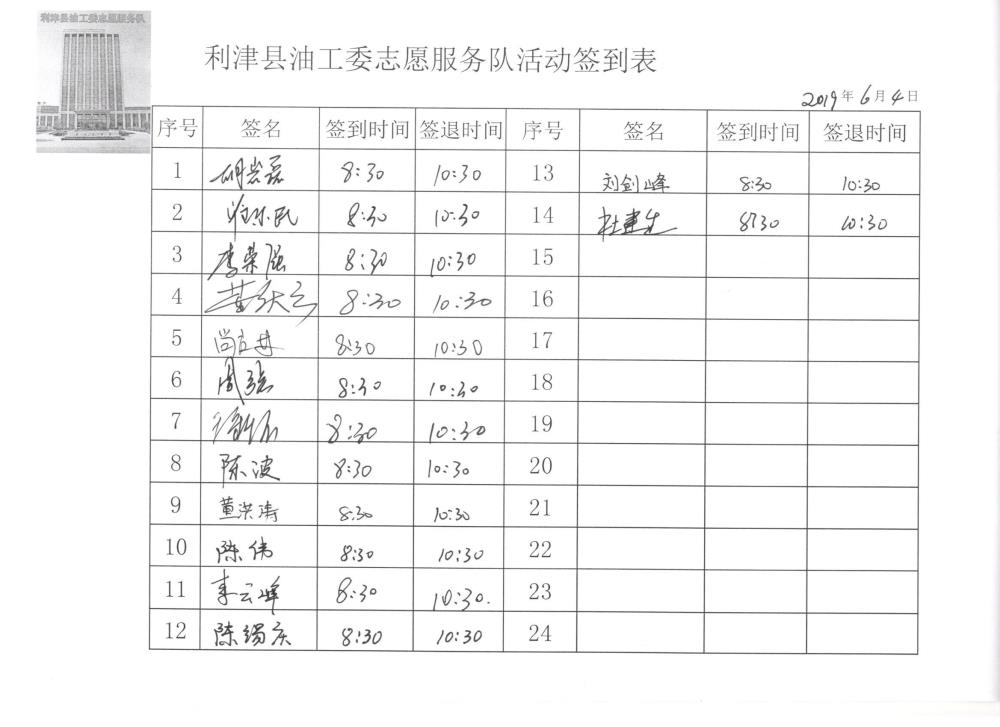 利津县油工委志愿服务队
利津县油工委志愿服务队活动签到表
2019年6月4日
序号 签名 签到时间 签退时间 序号 签名 签到时间 签退时间
1 胡岩磊 8:30 10:30 13 刘剑峰 8:30 10:30
2 8:30 10:30 14 杜建生 8:30 10:30
3 李荣强 8:30 10:30 15
4 8:30 10:30 16
5 8:30 10:30 17
6 周强 8:30 10:30 18
7 8:30 10:30 19
8 陈波 8:30 10:30 20
9 董洪涛 8:30 10:30 21
10 陈伟 8:30 10:30 22
11 李云峰 8:30 10:30. 23
12 8:30 10:30 24